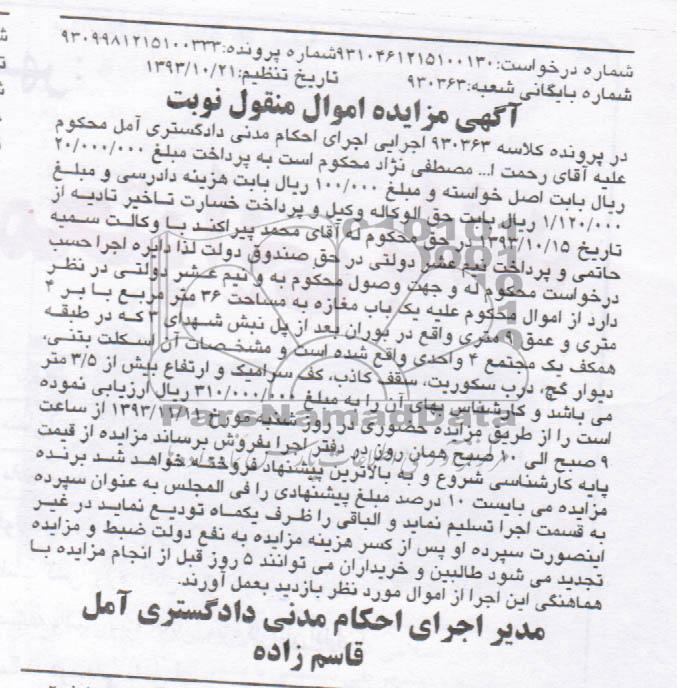 شماره درخواست: ۹۳۱۰۴۶۱۲۱۵۱۰۰۱۳۰ شماره پرونده: ۹۳۰۹۹۸۱۲۱۵۱۰۰۳۳۳
شماره بایگانی شعبه: ۹۳۰۳۶۳ تاریخ تنظیم: ۱۳۹۳/۱۰/۲۱
آگهی مزایده اموال منقول نوبت
در پرونده کلاسه ۹۳۰۳۶۳ اجرایی اجرای احکام مدنی دادگستری آمل محکوم
علیه آقای رحمت ا... مصطفی نژاد محکوم است به پرداخت مبلغ ۲۰/۰۰۰/۰۰۰
ریال بابت اصل خواسته و مبلغ ۱۰۰/۰۰۰ ریال بابت هزینه دادرسی و مبلغ
۱/۱۲۰/۰۰۰ ریال بابت حق الوکاله وکیل و پرداخت خسارت تاخیر تادیه از
تاریخ ۱۳۹۳/۱۰/۱۵ در حق محکوم له آقای محمد پیراکند با وکالت سمیه
حاتمی و پرداخت نیم عشر دولتی در حق صندوق دولت لذا دایره اجرا حسب
درخواست محکوم له و جهت وصول محکوم به و نیم عشر دولتی در نظر
دارد از اموال محکوم علیه یک باب مغازه به مساحت ۳۶ متر مربع با بر ۴
متری و عمق ۹ متری واقع در بوران بعد از پل نبش شهدای ۳ که در طبقه
همکف یک مجتمع ۴ واحدی واقع شده است و مشخصات آن اسکلت بتنی،
دیوار گچ، درب سکوریت، سقف کاذب، کف سرامیک و ارتفاع بیش از ۳/۵ متر
می باشد و کارشناس بهای آن را به مبلغ ۳۱۰/۰۰۰/۰۰۰ ریال ارزیابی نموده
است را از طریق مزایده حضوری در روز شنبه مورخ ۱۳۹۳/۱۲/۱۱ از ساعت
۹ صبح الی ۱۰ صبح همان روز در دفتر اجرا بفروش برساند مزایده از قیمت
پایه کارشناسی شروع و به بالاترین پیشنهاد فروخته خواهد شد برنده
مزایده می بایست ۱۰ درصد مبلغ پیشنهادی را فی المجلس به عنوان سپرده
به قسمت اجرا تسلیم نماید و الباقی را ظرف یکماه تودیع نماید در غیر
اینصورت سپرده او پس از کسر هزینه مزایده به نفع دولت ضبط و مزایده
تجدید می شود طالبین و خریداران می توانند ۵ روز قبل از انجام مزایده با
هماهنگی این اجرا از اموال مورد نظر بازدید بعمل آورند.
مدیر اجرای احکام مدنی دادگستری آمل
قاسم زاده
ParsNamadData